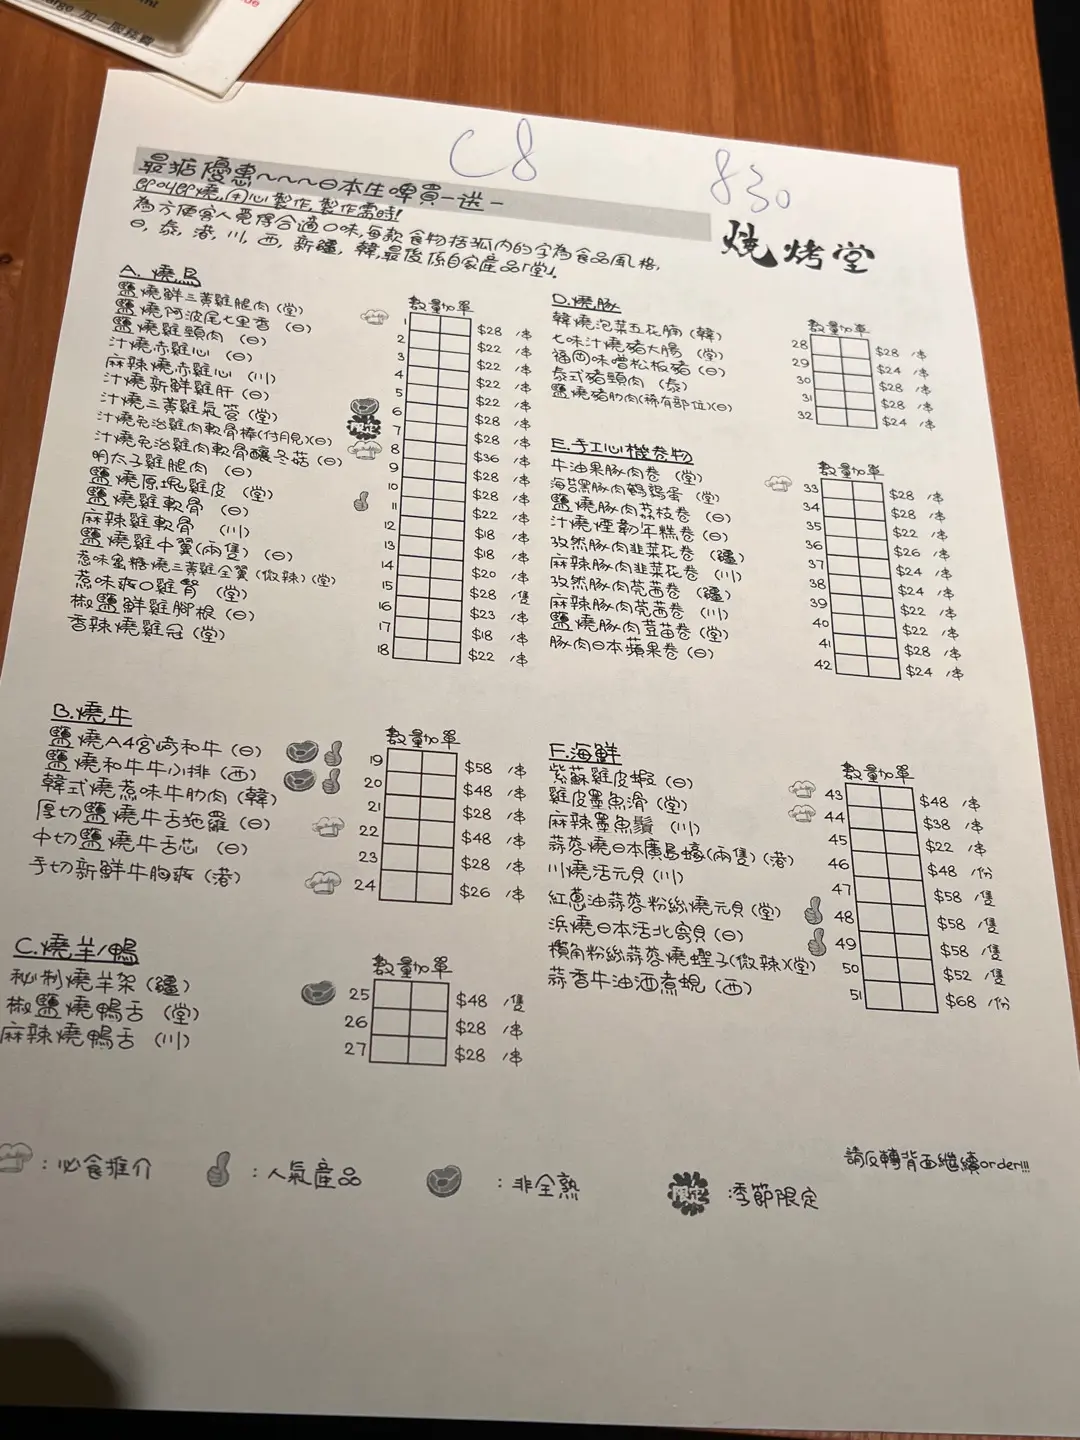 加一服務費
C8
830
最掂優惠~~~~日本生啤買一送一
即叫即燒,用心製作,製作需時!
為方便客人覓得合適口味,每款食物括弧內的字為食品風格,
日,泰,港,川,西,新疆,韓,最後係自家產品「堂」.
燒烤堂
A.燒鳥
數量加單
鹽燒鮮三黃雞腿肉(堂) 1 $28 /串
鹽燒阿波尾七里香(日) 2 $22 /串
鹽燒雞頸肉(日) 3 $22 /串
汁燒赤雞心(日) 4 $22 /串
麻辣燒赤雞心(川) 5 $22 /串
汁燒新鮮雞肝(日) 6 $28 /串
汁燒三黃雞氣管(堂) 限定 7 $28 /串
汁燒免治雞肉軟骨棒(付月見)(日) 8 $36 /串
汁燒免治雞肉軟骨釀冬菇(日) 9 $28 /串
明太子雞腿肉(日) 10 $28 /串
鹽燒原塊雞皮(堂) 11 $22 /串
鹽燒雞軟骨(日) 12 $18 /串
麻辣雞軟骨(川) 13 $18 /串
鹽燒雞中翼(兩隻)(日) 14 $20 /串
惹味蜜糖燒三黃雞全翼(微辣)(堂) 15 $28 /隻
惹味爽口雞腎(堂) 16 $23 /串
椒鹽鮮雞腳根(日) 17 $18 /串
香辣燒雞冠(堂) 18 $22 /串
B.燒牛
數量加單
鹽燒A4宮崎和牛(日) 19 $58 /串
鹽燒和牛牛小排(西) 20 $48 /串
韓式燒惹味牛肋肉(韓) 21 $28 /串
厚切鹽燒牛舌拖羅(日) 22 $48 /串
中切鹽燒牛舌芯(日) 23 $28 /串
手切新鮮牛胸爽(港) 24 $26 /串
C.燒羊/鴨
數量加單
秘制燒羊架(疆) 25 $48 /隻
椒鹽燒鴨舌(堂) 26 $28 /串
麻辣燒鴨舌(川) 27 $28 /串
D.燒豚
數量加單
韓燒泡菜五花腩(韓) 28 $28 /串
七味汁燒豬大腸(堂) 29 $24 /串
福岡味噌松板豬(日) 30 $28 /串
泰式豬頸肉(泰) 31 $28 /串
鹽燒豬肋肉(稀有部位)(日) 32 $24 /串
E.手工心機卷物
數量加單
牛油果豚肉卷(堂) 33 $28 /串
海苔黑豚肉鵪鶉蛋(堂) 34 $28 /串
鹽燒豚肉荔枝卷(日) 35 $22 /串
汁燒煙韌年糕卷(日) 36 $26 /串
孜然豚肉韭菜花卷(疆) 37 $24 /串
麻辣豚肉韭菜花卷(川) 38 $24 /串
孜然豚肉芫茜卷(疆) 39 $22 /串
麻辣豚肉芫茜卷(川) 40 $22 /串
鹽燒豚肉荳苗卷(堂) 41 $28 /串
豚肉日本蘋果卷(日) 42 $24 /串
F.海鮮
數量加單
紫蘇雞皮蝦(日) 43 $48 /串
雞皮墨魚滑(堂) 44 $38 /串
麻辣墨魚鬚(川) 45 $22 /串
蒜蓉燒日本廣島蠔(兩隻)(港) 46 $48 /份
川燒活元貝(川) 47 $58 /隻
紅蔥油蒜蓉粉絲燒元貝(堂) 48 $58 /隻
浜燒日本活北寄貝(日) 49 $58 /隻
欖角粉絲蒜蓉燒蟶子(微辣)(堂) 50 $52 /隻
蒜香牛油酒煮蜆(西) 51 $68 /份
請反轉背面繼續order!!!
:必食推介
:人氣產品
:非全熟
限定:季節限定